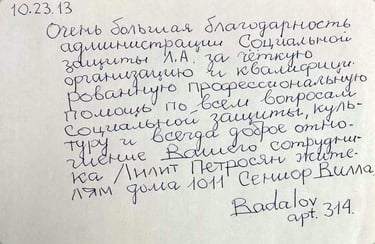 10.23.13
Очень большая благодарность
администрации Социальной
защиты Л.А. за чёткую
организацию и квалифици-
рованную профессиональную
помощь по всем вопросам
социальной защиты, куль-
туру и всегда доброе отно-
шение Вашего сотрудни-
ка Лилит Петросян жите-
лям дома 1011 Сениор Вилла.
Badalov
apt. 314.